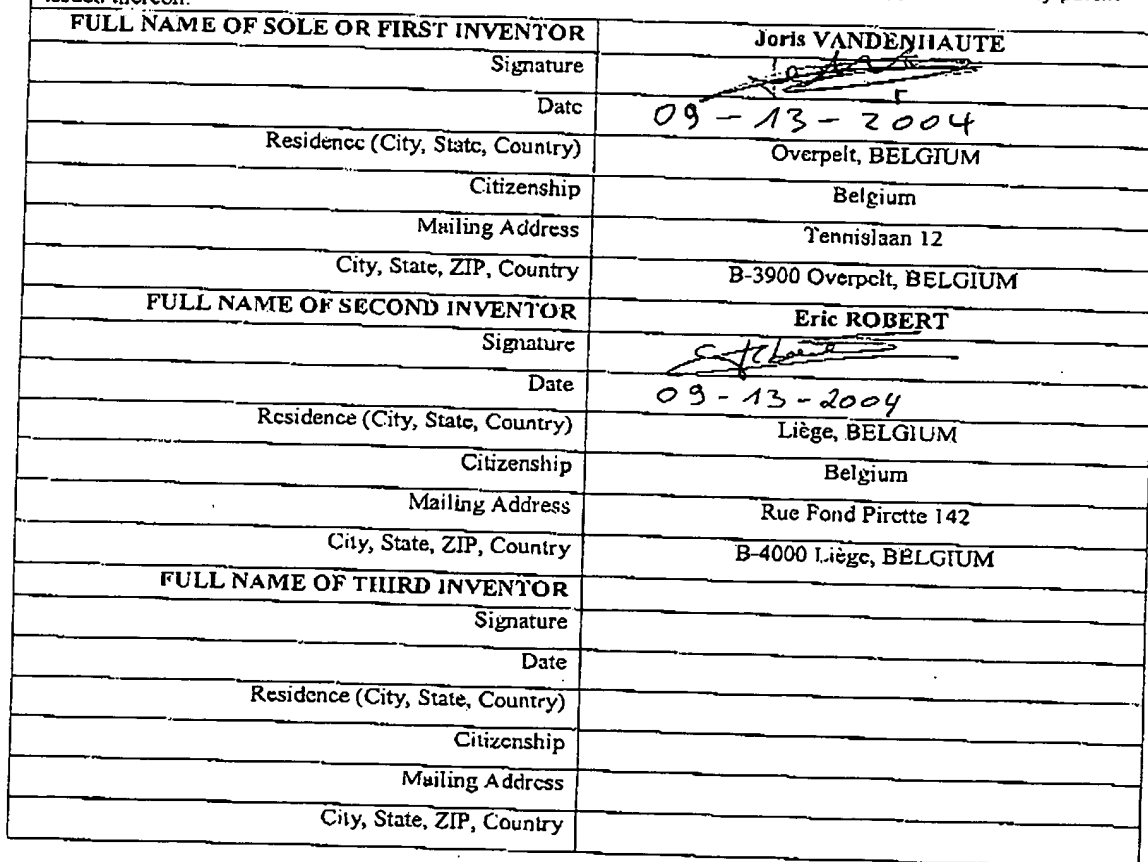 issued thereon.
FULL NAME OF SOLE OR FIRST INVENTOR Joris VANDENHAUTE
Signature
Date 09-13-2004
Residence (City, State, Country) Overpelt, BELGIUM
Citizenship Belgium
Mailing Address Tennislaan 12
City, State, ZIP, Country B-3900 Overpelt, BELGIUM
FULL NAME OF SECOND INVENTOR Eric ROBERT
Signature
Date 09-13-2004
Residence (City, State, Country) Liège, BELGIUM
Citizenship Belgium
Mailing Address Rue Fond Pirette 142
City, State, ZIP, Country B-4000 Liège, BELGIUM
FULL NAME OF THIRD INVENTOR
Signature
Date
Residence (City, State, Country)
Citizenship
Mailing Address
City, State, ZIP, Country